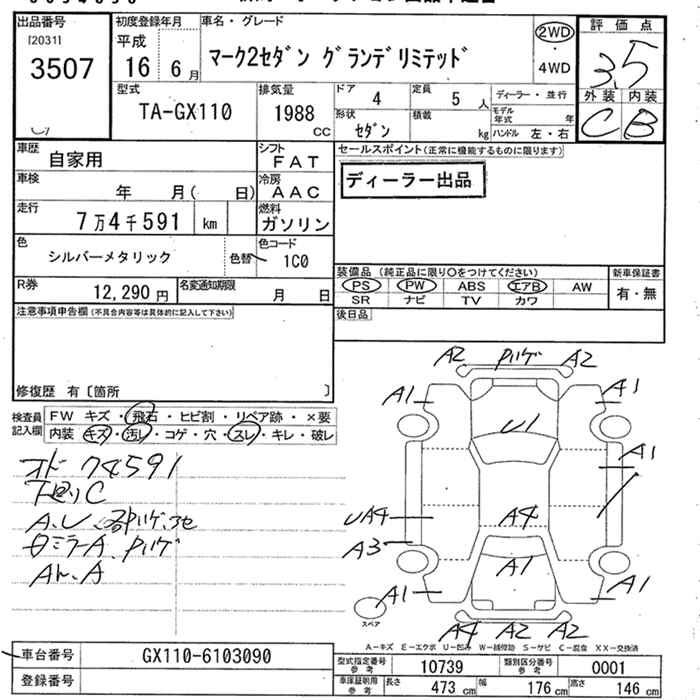 出品番号
[2031]
3507
初度登録年月
平成
16 6 月
車名・グレード
マーク2セダン グランデリミテッド
2WD
・
4WD
評価点
3.5
外装 内装
C B
型式
TA-GX110
排気量
1988
CC
ドア 4
定員 5 人
ディーラー・並行
形状 セダン
積載 kg
モデル年式 年
ハンドル 左・右
車歴 自家用
シフト FAT
セールスポイント(正常に機能するものに限ります)
ディーラー出品
車検 年 月( 日)
冷房 AAC
走行 7万4千591 km
燃料 ガソリン
色 シルバーメタリック
色替
色コード 1C0
装備品 (純正品に限り○をつけてください)
新車保証書
PS PW ABS エアB AW
有・無
SR ナビ TV カワ
R券 12,290円
名変通知期限 月 日
後日品
注意事項申告欄(不具合内容等は具体的に記入して下さい)
修復歴 有〔箇所 〕
検査員記入欄
FW キズ・飛石・ヒビ割・リペア跡・×要
内装 キズ・汚レ・コゲ・穴・スレ・キレ・破レ
オド 74591
下廻りC
A2 Pハゲ A2
A1 A1
U1
A1
UA4 A4
A3
A1
A1 A1
スペア
A4 A2 A2
A−キズ E−エクボ U−凹み W−補修跡 S−サビ C−腐食 XX−交換済
車台番号 GX110-6103090
登録番号
型式指定番号 参考 10739
類別区分番号 参考 0001
車庫証明用 参考 長さ 473 cm 幅 176 cm 高さ 146 cm